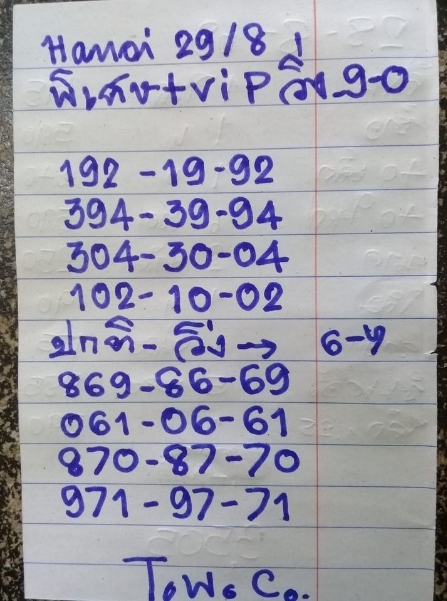 Hanoi 29/8
พิเศษ+vip วิ่ง 9-0
192 -19-92
394-39-94
304-30-04
102-10-02
ปกติ - วิ่ง → 6-7
869-86-69
061-06-61
870-87-70
971-97-71